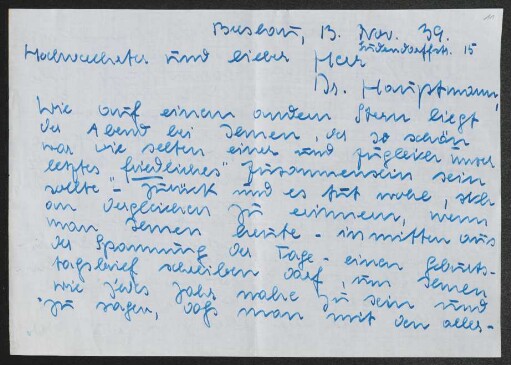 Breslau, 13. Nov. 39.
Ludendorffstr. 15
Hochverehrter und lieber Herr
Dr. Hauptmann,
Wie auf einem andern Stern liegt
der Abend bei Ihnen, der so schön
war wie selten einer und zugleich unser
letztes "friedliches" Zusammensein sein
sollte - zurück und es tut wohl, sich
an dergleichen zu erinnern, wenn
man Ihnen heute - inmitten aus
der Spannung der Tage - einen Geburts-
tagsbrief schreiben darf, um Ihnen
wie jedes Jahr nahe zu sein und
zu sagen, daß man mit den aller-